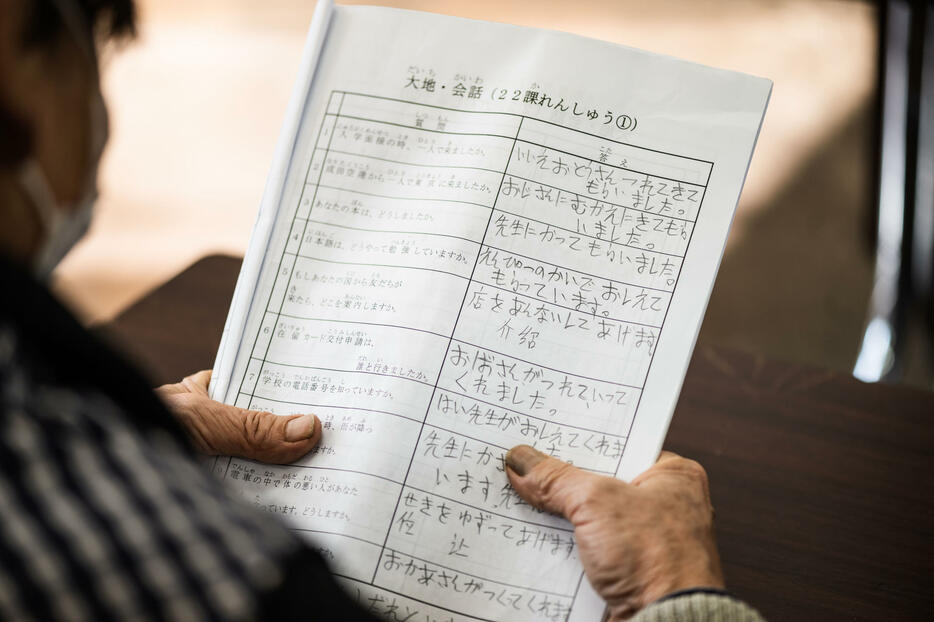 だいち かいわ か
大地・会話(22課れんしゅう①)
しつ もん
質 問
こた
答 え
1 入学面接の時、一人で来ましたか。
いいえおとうさんつれてきて
もらいました。
2 成田空港から一人で東京に来ましたか。
おじさんにむかえにきてもら
いました。
3 あなたの本は、どうしましたか。
先生にかってもらいました。
4 日本語は、どうやって勉強していますか。
もらっています。
5 もしあなたの国から友だちが
来たら、どこを案内しますか。
店をあんないしてあげます
介紹
6 在留カード交付申請は、
誰と行きましたか。
おばさんがつれていって
くれました。
7 学校の電話番号を知っていますか。
はい先生がおしえてくれま
時、雨が降っ
ますか。
先生にか
います。
電車の中で体の悪い人があなた
っています。どうしますか。
せきをゆずってあげます
位 让
おかあさんがつくってくれま